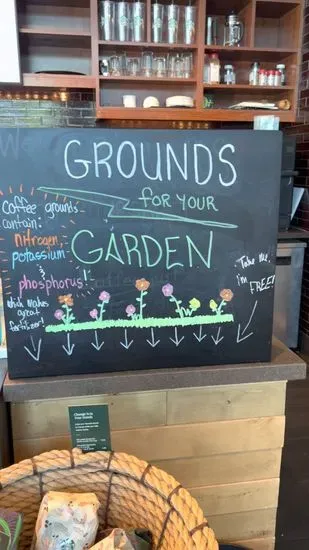 GROUNDS
for YOUR
GARDEN
Coffee grounds
contain:
nitrogen,
potassium
&
phosphorus!
which makes
great
fertilizer!
Take me,
i'm
FREE!
Change is in
Your Hands